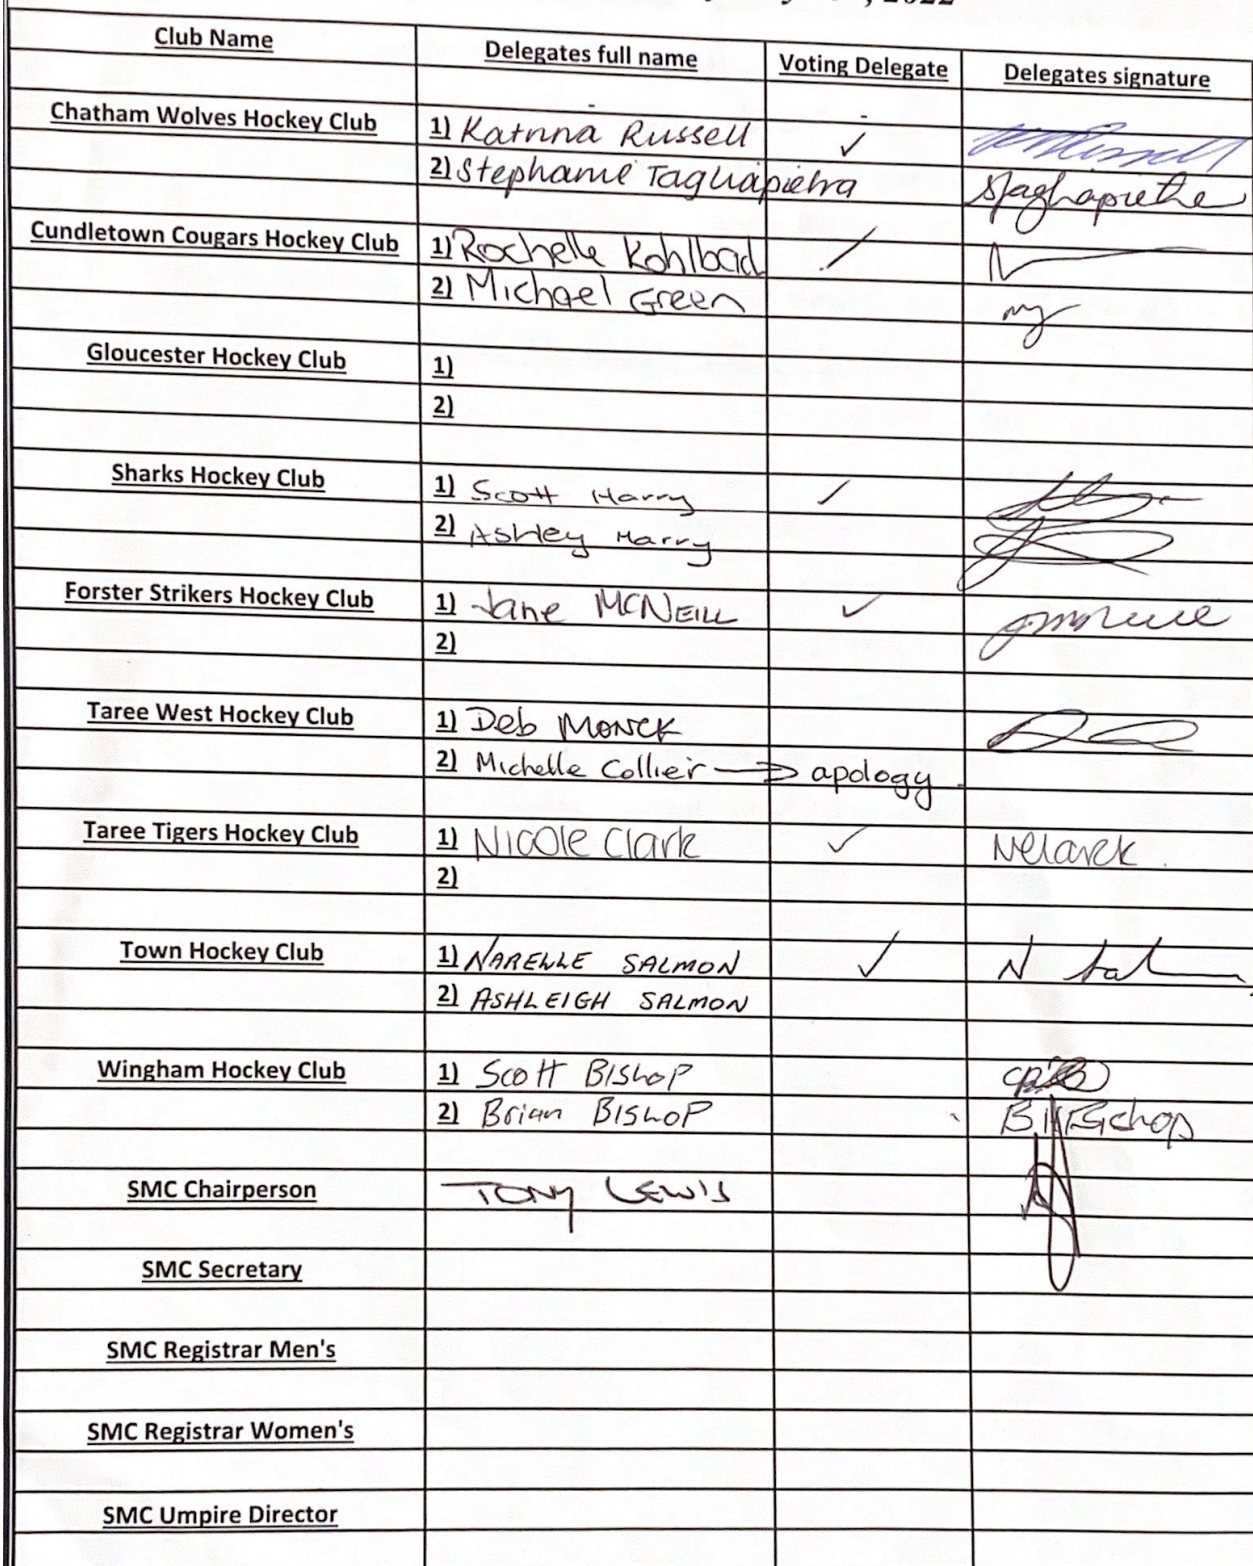 2022
Club Name Delegates full name Voting Delegate Delegates signature
Chatham Wolves Hockey Club 1) Katrina Russell ✓
2) Stephanie Tagliapietra
Cundletown Cougars Hockey Club 1) Rochelle Kohlbad ✓
2) Michael Green
Gloucester Hockey Club 1)
2)
Sharks Hockey Club 1) Scott Harry ✓
2) Ashley Harry
Forster Strikers Hockey Club 1) Jane McNEILL ✓
2)
Taree West Hockey Club 1) Deb MONCK
2) Michelle Collier → apology
Taree Tigers Hockey Club 1) Nicole Clark ✓ NClark
2)
Town Hockey Club 1) NARELLE SALMON ✓
2) ASHLEIGH SALMON
Wingham Hockey Club 1) Scott BISHOP
2) Brian BISHOP
SMC Chairperson TONY LEWIS
SMC Secretary
SMC Registrar Men's
SMC Registrar Women's
SMC Umpire Director